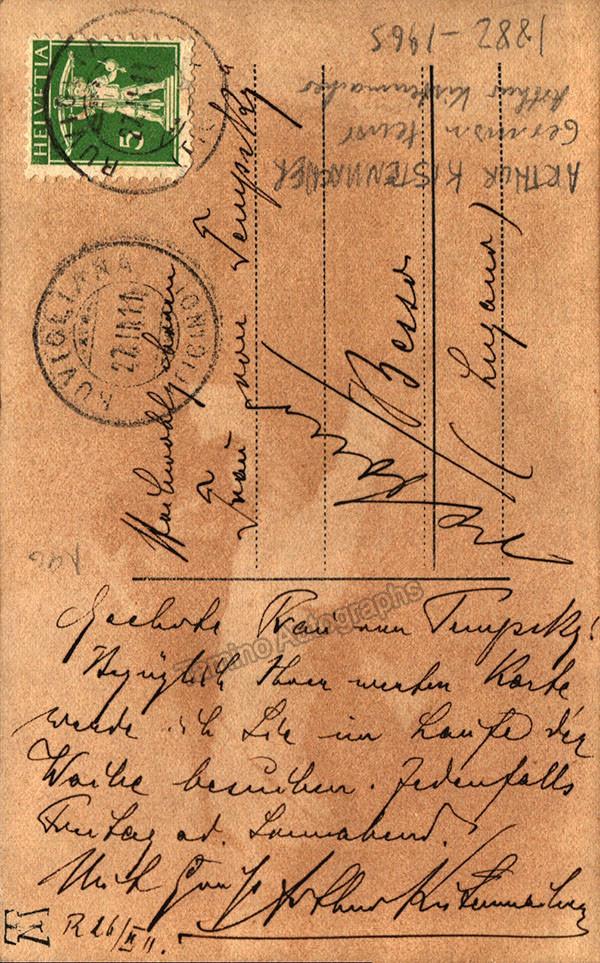 HELVETIA
5
RUVIGLIANA
27.III.11
1882 - 1965
Arthur Kistenmacher
German tenor
ARTHUR KISTENMACHER
Hochwohlgeboren
Frau von Tempsky
Besso
Lugano
Geehrte Frau von Tempsky!
Bezüglich Ihrer werten Karte
werde ich Sie im Laufe der
Woche besuchen. Jedenfalls
Freitag od. Sonnabend.
Mit Gruß Arthur Kistenmacher
R 26/III 11.
Tamino Autographs